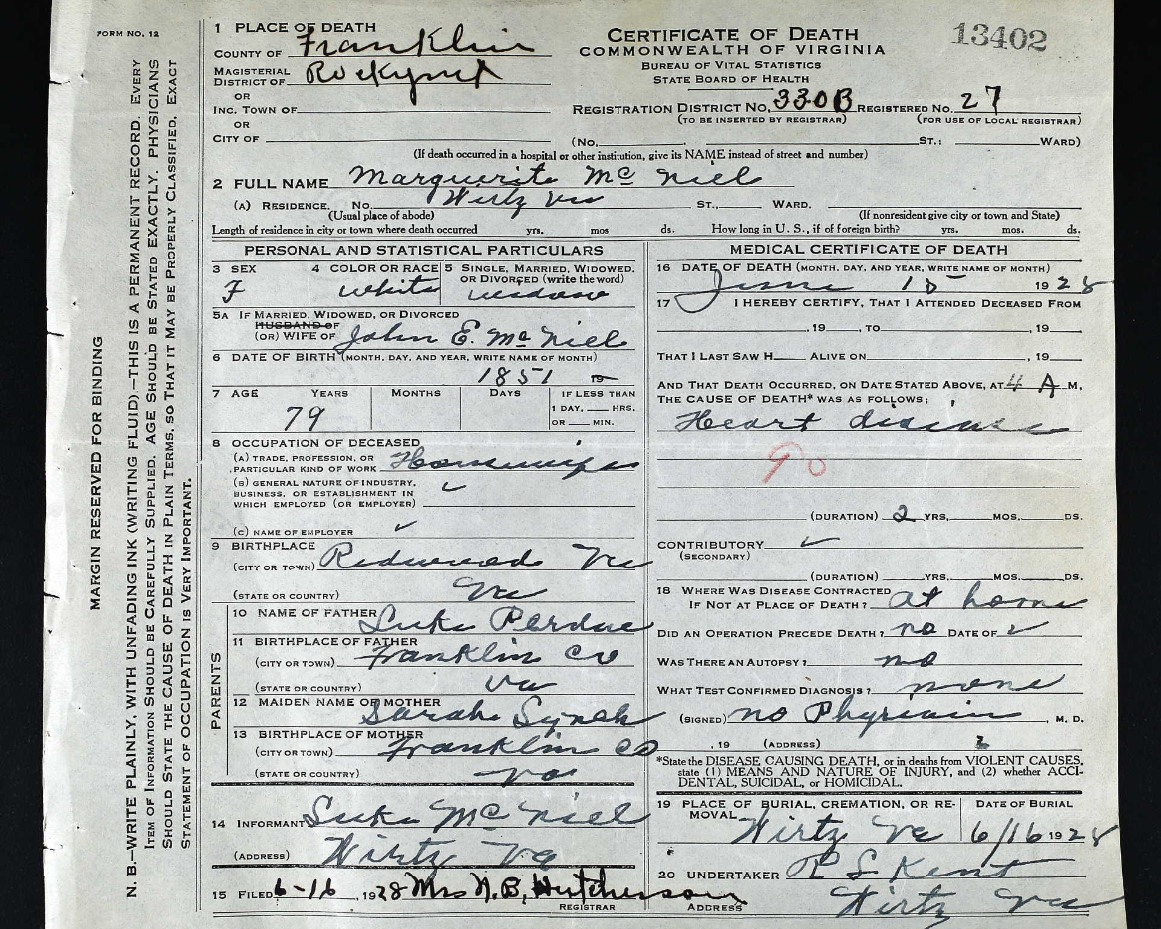 FORM NO. 12
MARGIN RESERVED FOR BINDING
N. B.—WRITE PLAINLY, WITH UNFADING INK (WRITING FLUID)—THIS IS A PERMANENT RECORD. EVERY
ITEM OF INFORMATION SHOULD BE CAREFULLY SUPPLIED. AGE SHOULD BE STATED EXACTLY. PHYSICIANS
SHOULD STATE THE CAUSE OF DEATH IN PLAIN TERMS, SO THAT IT MAY BE PROPERLY CLASSIFIED. EXACT
STATEMENT OF OCCUPATION IS VERY IMPORTANT.
1 PLACE OF DEATH
COUNTY OF Franklin
MAGISTERIAL DISTRICT OF Rockymt
OR
INC. TOWN OF
OR
CITY OF
CERTIFICATE OF DEATH
COMMONWEALTH OF VIRGINIA
BUREAU OF VITAL STATISTICS
STATE BOARD OF HEALTH
13402
REGISTRATION DISTRICT NO. 330B REGISTERED NO. 27
(TO BE INSERTED BY REGISTRAR) (FOR USE OF LOCAL REGISTRAR)
(No. ST.; WARD)
(If death occurred in a hospital or other institution, give its NAME instead of street and number)
2 FULL NAME Marguerite McNiel
(A) RESIDENCE. No. Wirtz Va ST., WARD.
(Usual place of abode) (If nonresident give city or town and State)
Length of residence in city or town where death occurred yrs. mos ds. How long in U. S., if of foreign birth? yrs. mos. ds.
PERSONAL AND STATISTICAL PARTICULARS
3 SEX 4 COLOR OR RACE 5 SINGLE, MARRIED, WIDOWED, OR DIVORCED (write the word)
F white widow
5A IF MARRIED, WIDOWED, OR DIVORCED
HUSBAND OF
(OR) WIFE OF John E. McNiel
6 DATE OF BIRTH (MONTH, DAY, AND YEAR, WRITE NAME OF MONTH)
1851 19
7 AGE YEARS MONTHS DAYS IF LESS THAN
1 DAY, HRS.
OR MIN.
79
8 OCCUPATION OF DECEASED
(A) TRADE, PROFESSION, OR
PARTICULAR KIND OF WORK Housewife
(B) GENERAL NATURE OF INDUSTRY,
BUSINESS, OR ESTABLISHMENT IN
WHICH EMPLOYED (OR EMPLOYER)
(C) NAME OF EMPLOYER
9 BIRTHPLACE
(CITY OR TOWN) Redwood Va
(STATE OR COUNTRY) Va
PARENTS
10 NAME OF FATHER Luke Perdue
11 BIRTHPLACE OF FATHER
(CITY OR TOWN) Franklin Co
(STATE OR COUNTRY) Va
12 MAIDEN NAME OF MOTHER Sarah
13 BIRTHPLACE OF MOTHER
(CITY OR TOWN) Franklin Co
(STATE OR COUNTRY) Va
14 INFORMANT Luke McNiel
(ADDRESS) Wirtz Va
15 FILED 6-16, 1928 Mrs N.B. Hutcherson
REGISTRAR
MEDICAL CERTIFICATE OF DEATH
16 DATE OF DEATH (MONTH, DAY, AND YEAR, WRITE NAME OF MONTH)
June 15 1928
17 I HEREBY CERTIFY, THAT I ATTENDED DECEASED FROM
, 19 , TO , 19
THAT I LAST SAW H ALIVE ON , 19
AND THAT DEATH OCCURRED, ON DATE STATED ABOVE, AT 4 A M.
THE CAUSE OF DEATH* WAS AS FOLLOWS:
Heart disease
90
(DURATION) 2 YRS. MOS. DS.
CONTRIBUTORY
(SECONDARY)
(DURATION) YRS. MOS. DS.
18 WHERE WAS DISEASE CONTRACTED
IF NOT AT PLACE OF DEATH? at home
DID AN OPERATION PRECEDE DEATH? no DATE OF
WAS THERE AN AUTOPSY? no
WHAT TEST CONFIRMED DIAGNOSIS? none
(SIGNED) no Physician, M. D.
, 19 (ADDRESS)
*State the DISEASE CAUSING DEATH, or in deaths from VIOLENT CAUSES,
state (1) MEANS AND NATURE OF INJURY, and (2) whether ACCI-
DENTAL, SUICIDAL, or HOMICIDAL.
19 PLACE OF BURIAL, CREMATION, OR RE-
MOVAL Wirtz Va
DATE OF BURIAL
6/16 1928
20 UNDERTAKER R S Kent
ADDRESS Wirtz Va